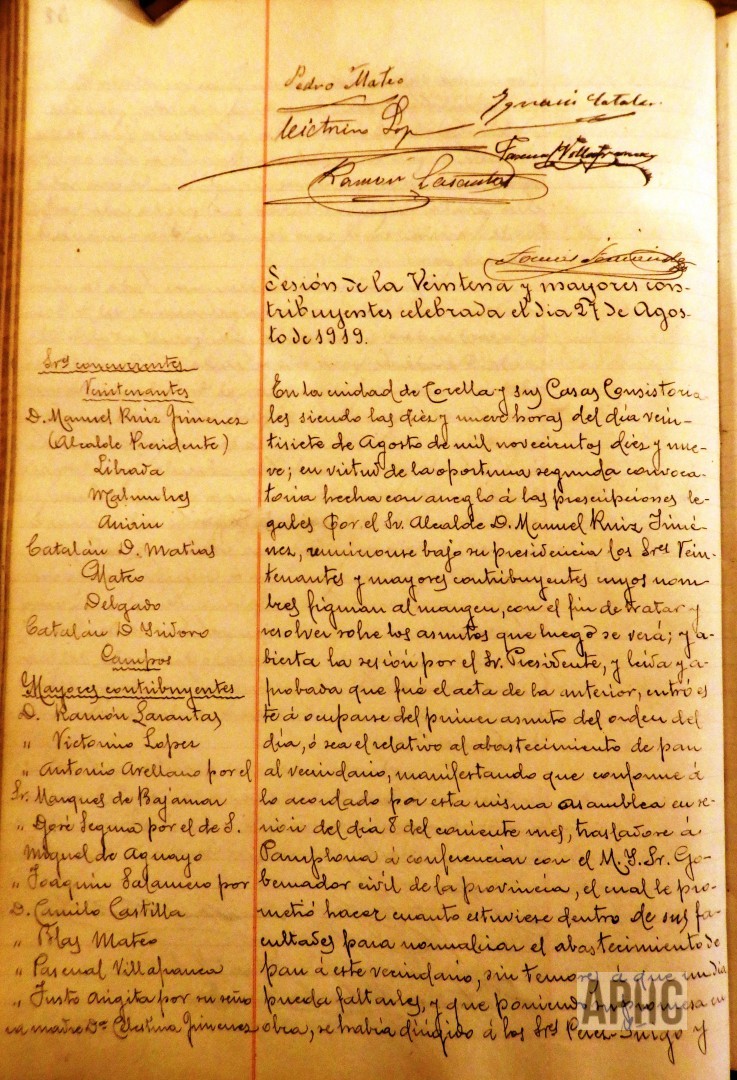 Pedro Mateo
Victorino Lop
Ignacio Catalan
Pascual Villafranca
Ramón Lasantas
Sesión de la Veintena y mayores con-
tribuyentes celebrada el dia 27 de Agos-
to de 1919.
Sres concurrentes
Veintenantes
D. Manuel Ruiz Jimenez
(Alcalde Presidente)
Librada
Malumbres
Catalán D. Matías
Mateo
Delgado
Catalán D Isidoro
Campos
Mayores contribuyentes
D. Ramón Lasantas
" Victorino Lopez
" Antonio Arellano por el
Sr. Marques de Bajamar
" José Segura por el de S.
Miguel de Aguayo
" Joaquin Salamero por
D. Camilo Castilla
" Blas Mateo
" Pascual Villafranca
" Justo Angita por su seño
ra madre Dª Celestina Jimenez
En la ciudad de Corella y sus Casas Consistoria
les siendo las diez y nueve horas del día vein-
tisiete de Agosto de mil novecientos diez y nue-
ve; en virtud de la oportuna segunda convoca-
toria hecha con arreglo á las prescripciones le-
gales por el Sr. Alcalde D. Manuel Ruiz Jimé-
nez, reuniéronse bajo su presidencia los Sres Vein-
tenantes y mayores contribuyentes cuyos nom
bres figuran al margen, con el fin de tratar y
resolver sobre los asuntos que luego se verá; y a-
bierta la sesión por el Sr. Presidente, y leida y a-
probada que fué el acta de la anterior, entró es
te á ocuparse del primer asunto del orden del
día, ó sea el relativo al abastecimiento de pan
al vecindario, manifestando que conforme á
lo acordado por esta misma asamblea en se-
sión del día 8 del corriente mes, trasladose á
Pamplona á conferenciar con el M. Y. Sr. Go-
bernador civil de la provincia, el cual le pro-
metió hacer cuanto estuviese dentro de sus fa-
cultades para normalizar el abastecimiento de
pan á este vecindario, sin temores á que un dia
pueda faltarles, y que poniendo su promesa en
obra, se había dirigido á los Sres Perez-Iñigo y
APNC